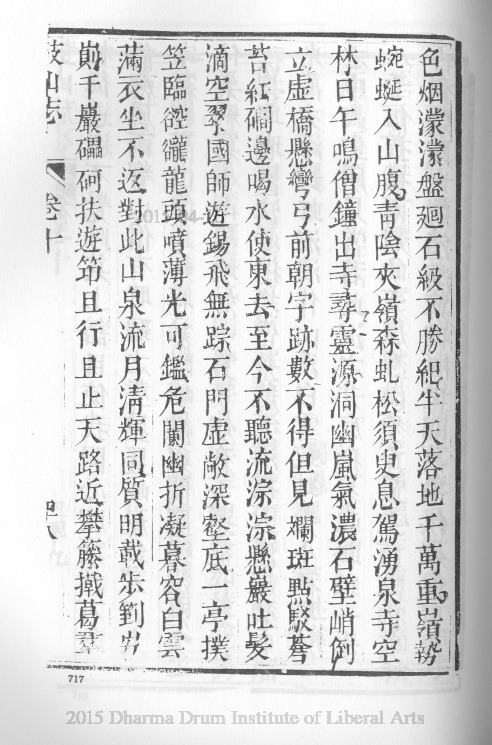 色烟濛濛盤廻石級不勝紀半天落地千萬重嶺勢
蜿蜒入山腹靑陰夾嶺森虬松須臾息駕湧泉寺空
林日午鳴僧鐘出寺尋靈源洞幽嵐氣濃石壁峭倒
立虛橋懸彎弓前朝字跡數不得但見斕斑點駁蒼
苔紅磵邊喝水使東去至今不聽流淙淙懸巖吐髮
滴空翠國師遊錫飛無踪石門虛敞深壑底一亭撲
笠臨谾巃龍頭噴薄光可鑑危闌幽折凝暮容白雲
滿衣坐不返對此山泉流月淸輝同質明載步到屴
崱千巖礧砢扶遊筇且行且止天路近攀藤擥葛羣
鼓山志 卷十 四八
717
2015 Dharma Drum Institute of Liberal Arts